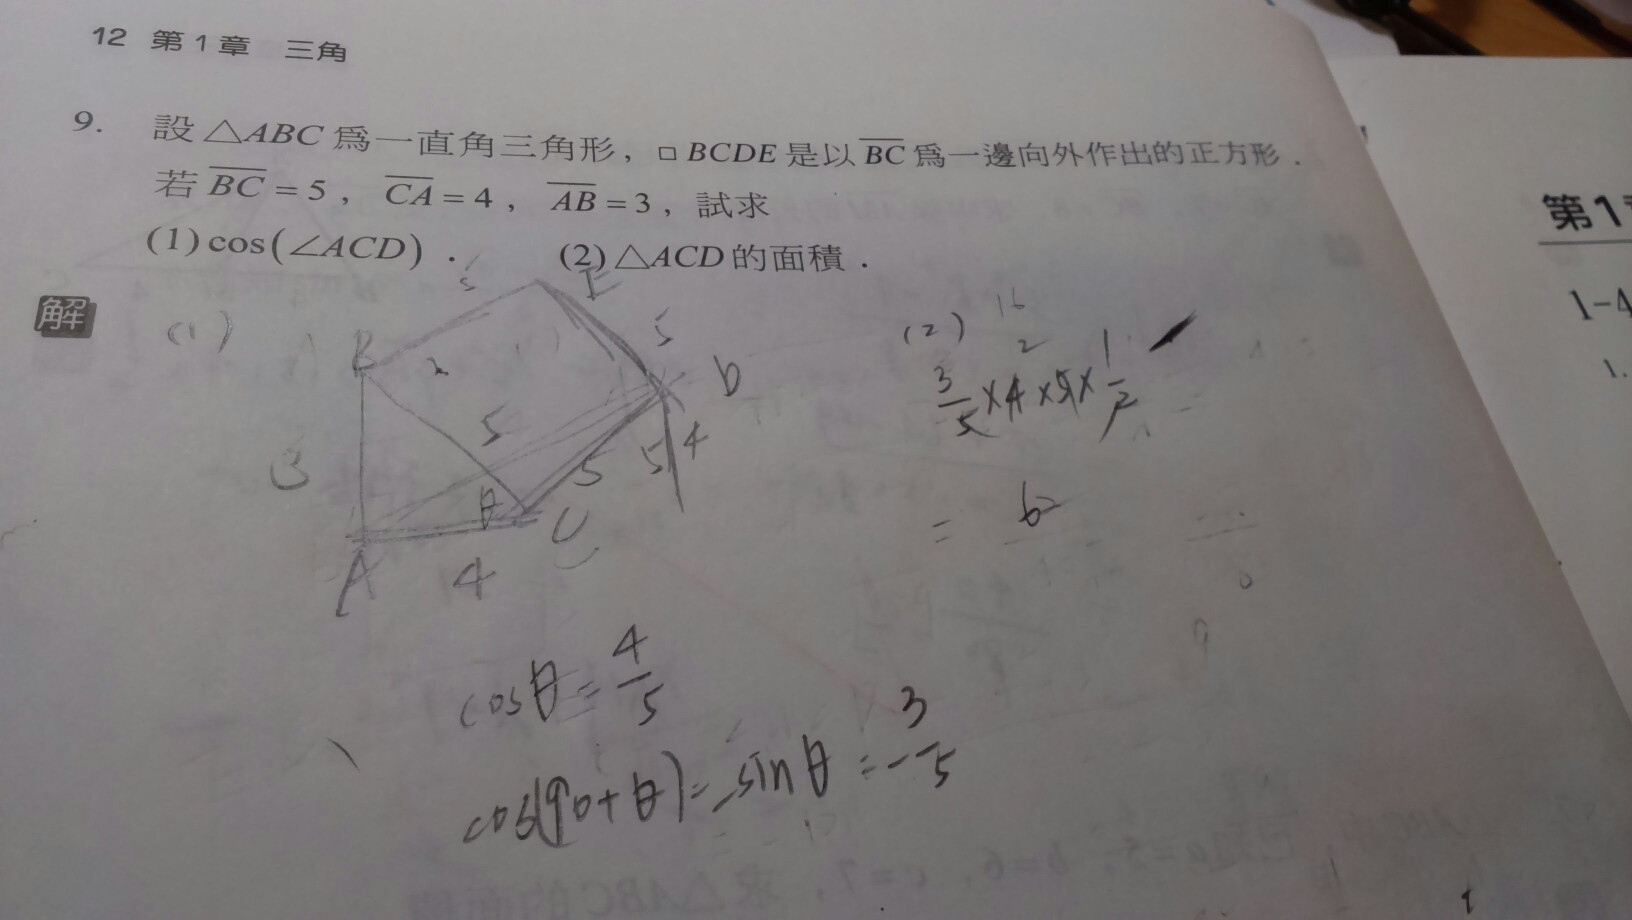 12 第1章 三角
9. 設△ABC為一直角三角形，□BCDE是以BC為一邊向外作出的正方形．
若BC=5，CA=4，AB=3，試求
(1)cos(∠ACD)． (2)△ACD的面積．
解
(1)
B
E
5
5
D
3
5
5
5
4
θ
C
A
4
cosθ=4/5
cos(90+θ)=-sinθ=-3/5
(2)
3/5×4×5×1/2
= 6
第1
1-4
1.